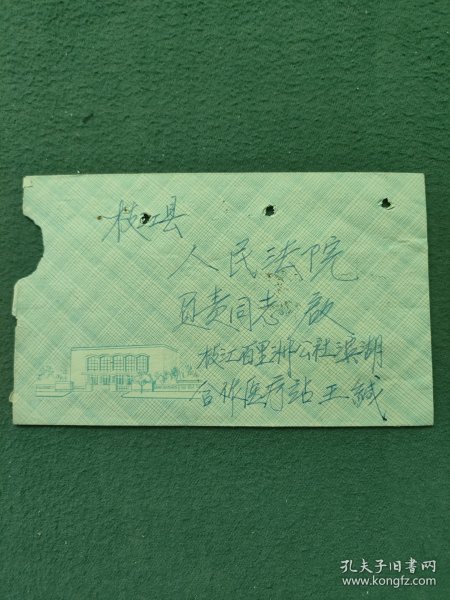 枝江县
人民法院
负责同志 启
枝江百里洲公社滨湖
合作医疗站王缄
孔夫子旧书网
www.kongfz.com